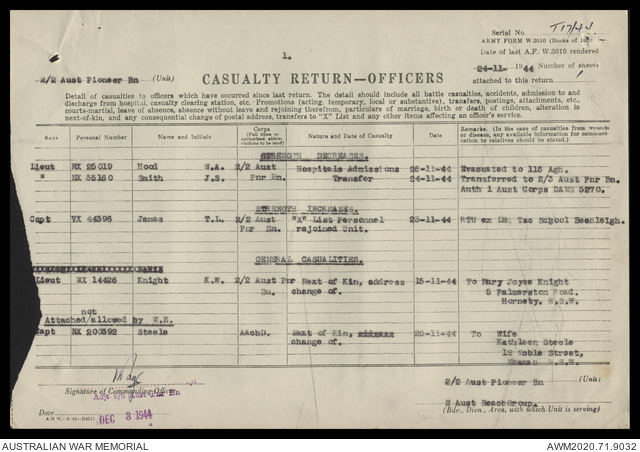 Serial No. T17/44
ARMY FORM W.3010 (Books of 100)
Date of last A.F. W.3010 rendered
1.
24-11-1944 Number of sheets
2/2 Aust Pioneer Bn (Unit)
CASUALTY RETURN—OFFICERS
attached to this return
Detail of casualties to officers which have occurred since last return. The detail should include all battle casualties, accidents, admission to and
discharge from hospital, casualty clearing station, etc. Promotions (acting, temporary, local or substantive), transfers, postings, attachments, etc.,
courts-martial, leave of absence, absence without leave and rejoining therefrom, particulars of marriage, birth or death of children, alteration in
next-of-kin, and any consequential change of postal address, transfers to "X" List and any other items affecting an officer's service.
Rank Personal Number Name and Initials Corps (Full titles or authorised abbreviations to be used) Nature and Date of Casualty Date Remarks. (In the case of casualties from wounds or disease, any available information for communication to relatives should be stated.)
STRENGTH DECREASES.
Lieut NX 25019 Hood W.A. 2/2 Aust Hospitals Admissions 26-11-44 Evacuated to 116 Agh.
" Smith J.S. Pnr Bn. Transfer 24-11-44 Transferred to 2/3 Aust Pnr Bn.
Auth 1 Aust Corps 5270.
STRENGTH INCREASES.
Capt VX 44396 James T.L. 2/2 Aust "X" List Personnel 23-11-44 RTU ex Tac School Beenleigh.
Pnr Bn. rejoined Unit.
GENERAL CASUALTIES.
Lieut NX 14426 Knight K.W. 2/2 Aust Pnr Next of Kin, address 15-11-44 To Mary Joyce Knight
Bn. change of. 5 Palmerston Road,
Hornsby, N.S.W.
not
Attached/allowed by W.E.
Capt NX 200392 Steele AAchD. Next of Kin, 25-11-44 To Wife
change of. Kathleen Steele
12 Noble Street,
Mosman N.S.W.
Signature of Commanding Officer
Adjt 2/2 Aust Pnr Bn
2/2 Aust Pioneer Bn (Unit)
Date DEC 3 1944
2 Aust BeachGroup.
(Bde., Divn., Area, with which Unit is serving)
AUSTRALIAN WAR MEMORIAL
AWM2020.71.9032